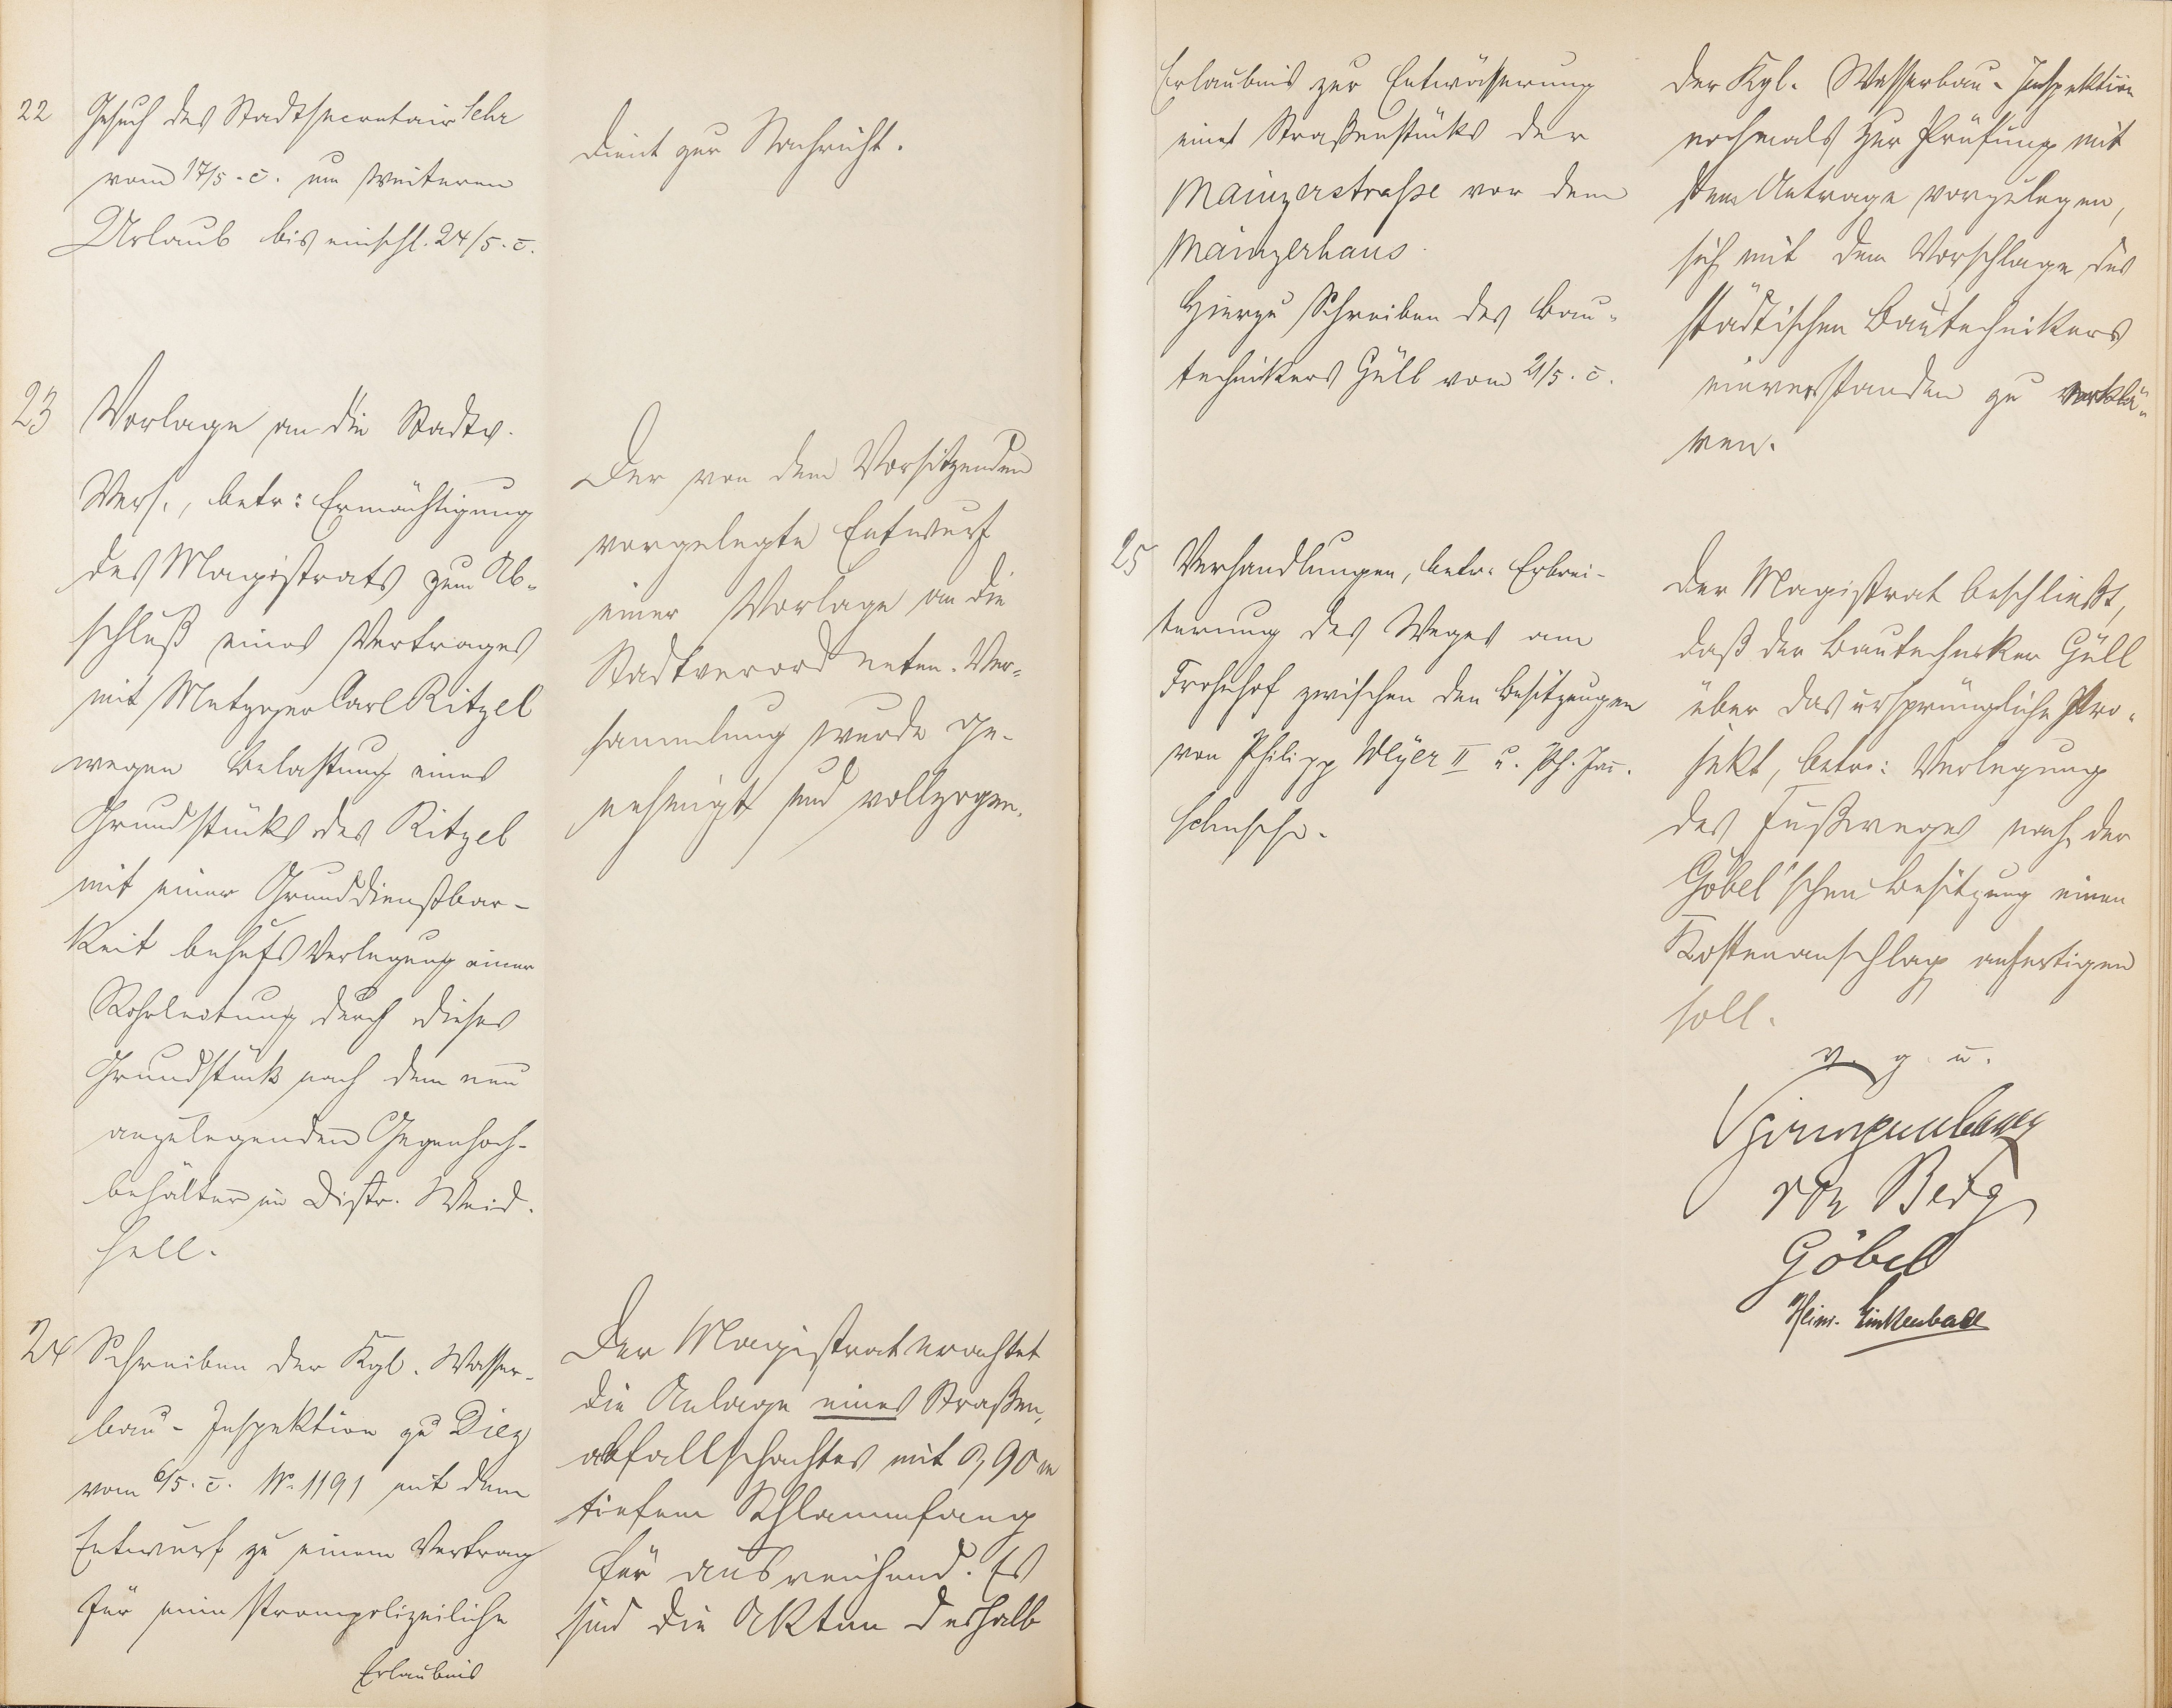 22 Gesuch des Stadtsecretair Sehr
vom 17/5. c. um weiteren
Urlaub bis einschl. 24/5. c.
Dient zur Nachricht.
23 Vorlage an die Stadtv.
Vers., betr: Ermächtigung
des Magistrats zum Ab-
schluß eines Vertrages
mit Metzger Carl Ritzel
wegen Belastung eines
Grundstücks des Ritzel
mit einer Grunddienstbar-
keit behufs Verlegung einer
Rohrleitung durch dieses
Grundstück nach dem neu
anzulegenden Gegenhoch-
behälter im Distr. Weid-
hell.
Der von dem Vorsitzenden
vorgelegte Entwurf
einer Vorlage an die
Stadtverordneten-Ver-
sammlung wurde ge-
nehmigt und vollzogen.
24 Schreiben der Kgl. Wasser-
bau-Inspektion zu Diez
vom 6/5. c. No 1191 mit dem
Entwurf zu einem Vertrag
für eine strompolizeiliche
Erlaubnis
Der Magistrat erachtet
die Anlage eines Straßen-
abfallschachtes mit 0,90 m
tiefem Schlammfang
für ausreichend. Es
sind die Akten deshalb
Erlaubnis zur Entwässerung
eines Straßenstücks der
Mainzerstraße vor dem
Mainzerhaus.
Hierzu Schreiben des Bau-
technikers Güll vom 21/5. c.
der Kgl. Wasserbau-Inspektion
nochmals zur Prüfung mit
dem Antrage vorzulegen,
sich mit dem Vorschlage des
städtischen Bautechnikers
einverstanden zu erklä-
ren.
25 Verhandlungen, betr. Erbrei-
terung des Weges am
Frohnhof zwischen den Besitzungen
von Philipp Meyer II u. Ph. Jac.
Der Magistrat beschließt,
daß der Bautechniker Güll
über das ursprüngliche Pro-
jekt, betr.: Verlegung
des Fußweges nach der
Göbel'schen Besitzung einen
Kostenanschlag anfertigen
soll.
v. g. u.
von Berg
Göbel
Heinr. Linkenbach